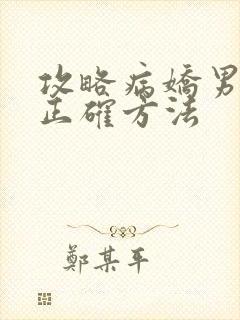 攻略病嬌男
正確方法
鄭某平